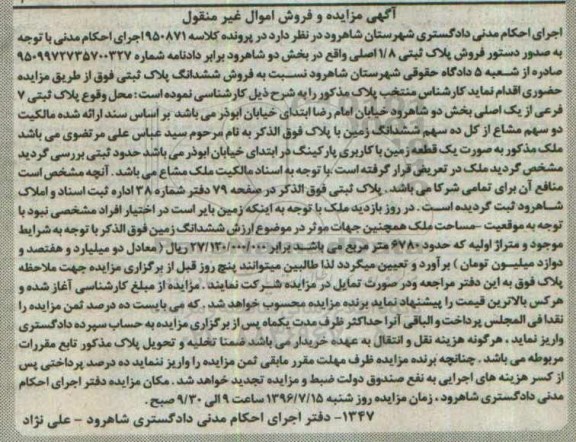 آگهی مزایده و فروش اموال غیر منقول
اجرای احکام مدنی دادگستری شهرستان شاهرود در نظر دارد در پرونده کلاسه ۹۵۰۸۷۱ اجرای احکام مدنی با توجه
به صدور دستور فروش پلاک ثبتی ۱/۸ اصلی واقع در بخش دو شاهرود برابر دادنامه شماره ۹۵۰۹۹۷۲۷۳۵۷۰۰۳۲۷
صادره از شعبه ۵ دادگاه حقوقی شهرستان شاهرود نسبت به فروش ششدانگ پلاک ثبتی فوق از طریق مزایده
حضوری اقدام نماید کارشناس منتخب پلاک مذکور را به شرح ذیل کارشناسی نموده است: محل وقوع پلاک ثبتی ۷
فرعی از یک اصلی بخش دو شاهرود خیابان امام رضا ابتدای خیابان ابوذر می باشد بر اساس سند ارائه شده مالکیت
دو سهم مشاع از کل ده سهم ششدانگ زمین با پلاک فوق الذکر به نام مرحوم سید عباس علی مرتضوی می باشد
ملک مذکور به صورت یک قطعه زمین با کاربری پارکینگ در ابتدای خیابان ابوذر می باشد حدود ثبتی بررسی گردید
مشخص گردید ملک در تعریض قرار گرفته است . با توجه به اسناد مالکیت ملک مشاع می باشد . آنچه مشخص است
منافع آن برای تمامی شرکا می باشد . پلاک ثبتی فوق الذکر در صفحه ۷۹ دفتر شماره ۳۸ اداره ثبت اسناد و املاک
شاهرود ثبت گردیده است . در روز بازدید ملک با توجه به اینکه زمین بایر است در اختیار افراد مشخصی نبود با
توجه به موقعیت -مساحت ملک همچنین جهات موثر در موضوع ارزش ششدانگ زمین فوق الذکر با توجه به شرایط
موجود و متراژ اولیه که حدود ۶۷۸۰ متر مربع می باشد برابر ۲۷/۱۳۰/۰۰۰/۰۰۰ ریال ( معادل دو میلیارد و هفتصد و
دوازد میلیون تومان ) برآورد و تعیین میگردد لذا طالبین میتوانند پنج روز قبل از برگزاری مزایده جهت ملاحظه
پلاک فوق به این دفتر مراجعه ودر صورت تمایل در مزایده شرکت نمایند. مزایده از مبلغ کارشناسی آغاز شده و
هرکس بالاترین قیمت را پیشنهاد نماید برنده مزایده محسوب خواهد شد . که می بایست ده درصد ثمن مزایده را
نقدا فی المجلس پرداخت و الباقی آنرا حداکثر ظرف مدت یکماه پس از برگزاری مزایده به حساب سپرده دادگستری
واریز نماید . هرگونه هزینه نقل و انتقال به عهده خریدار می باشد ضمنا تخلیه و تحویل پلاک مذکور تابع مقررات
مربوطه می باشد . چنانچه برنده مزایده ظرف مهلت مقرر مابقی ثمن مزایده را واریز ننماید ده درصد پرداختی پس
از کسر هزینه های اجرایی به نفع صندوق دولت ضبط و مزایده تجدید خواهد شد . مکان مزایده دفتر اجرای احکام
مدنی دادگستری شاهرود . زمان مزایده روز شنبه ۱۳۹۶/۷/۱۵ ساعت ۹ الی ۹/۳۰ صبح .
۱۳۴۷- دفتر اجرای احکام مدنی دادگستری شاهرود - علی نژاد